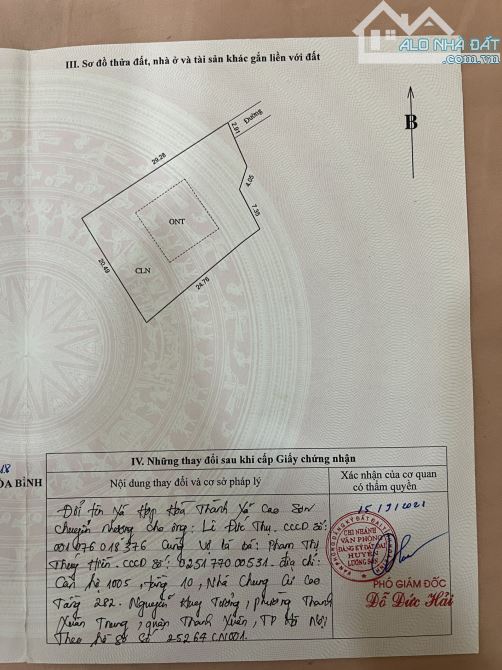 ALO NHÀ ĐẤT
III. Sơ đồ thửa đất, nhà ở và tài sản khác gắn liền với đất
Đường
B
2.91
29.28
4.05
7.35
ONT
CLN
20.49
24.76
18
ÒA BÌNH
IV. Những thay đổi sau khi cấp Giấy chứng nhận
Nội dung thay đổi và cơ sở pháp lý
Xác nhận của cơ quan
có thẩm quyền
Đổi tên Xã Hợp Hoà Thành Xã Cao Sơn
chuyển nhượng cho ông: Lê Đức Thụ. CCCD số:
001076018376 Cùng Vợ là bà: Phạm Thị
Thuý Hiền. CCCD số: 025177000531. địa chỉ:
Căn hộ 1005, tầng 10, Nhà Chung Cư Cao
Tầng 282. Nguyễn Huy Tưởng, phường Thanh
Xuân Trung, quận Thanh Xuân, TP Hà Nội
Theo hồ sơ số 25264 CN001.
CHI NHÁNH
VĂN PHÒNG
ĐĂNG KÝ ĐẤT ĐAI
HUYỆN
LƯƠNG SƠN
PHÓ GIÁM ĐỐC
Đỗ Đức Hải